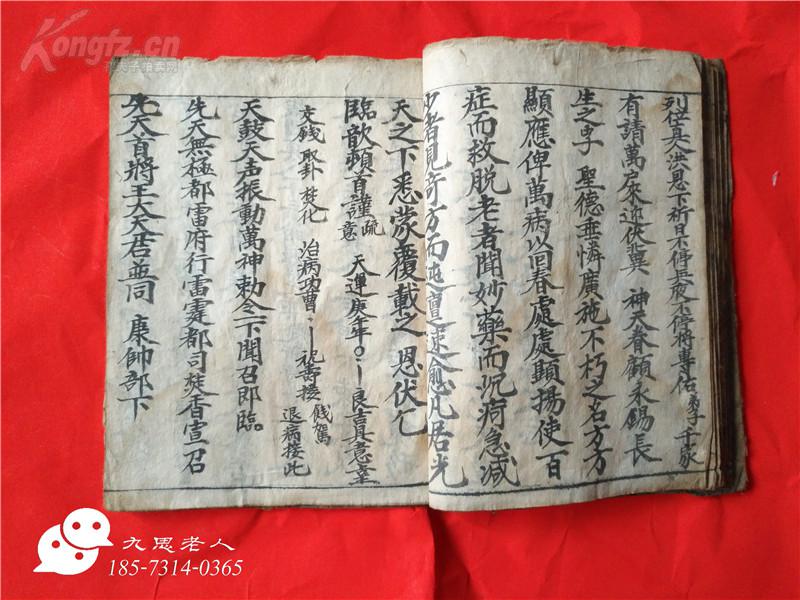 列位真人洪恩下祈日不停時夜不停將專佑弟子千家
有請萬户來迎伏冀 神天眷顧永錫長
生之孚 聖德垂憐廣施不朽之名方方
顯應俾萬病以回春處處顯揚使百
症而救脱老者聞妙藥而沉痾急減
少者見奇方而迍邅速愈凡居光
天之下悉蒙覆載之 恩伏乞
臨歆頓首謹疏意 天運庚年〇丨良吉具意呈
交錢 取卦 焚化 治病功曹丨祝壽接 餞駕
退病接此
天鼓天声振動萬神勅令一下聞召即臨。
先天無極都雷府行雷霆都司焚香宣召
先天首將王大天君並同 康帥部下
Kongfz.cn
九思老人
185-7314-0365